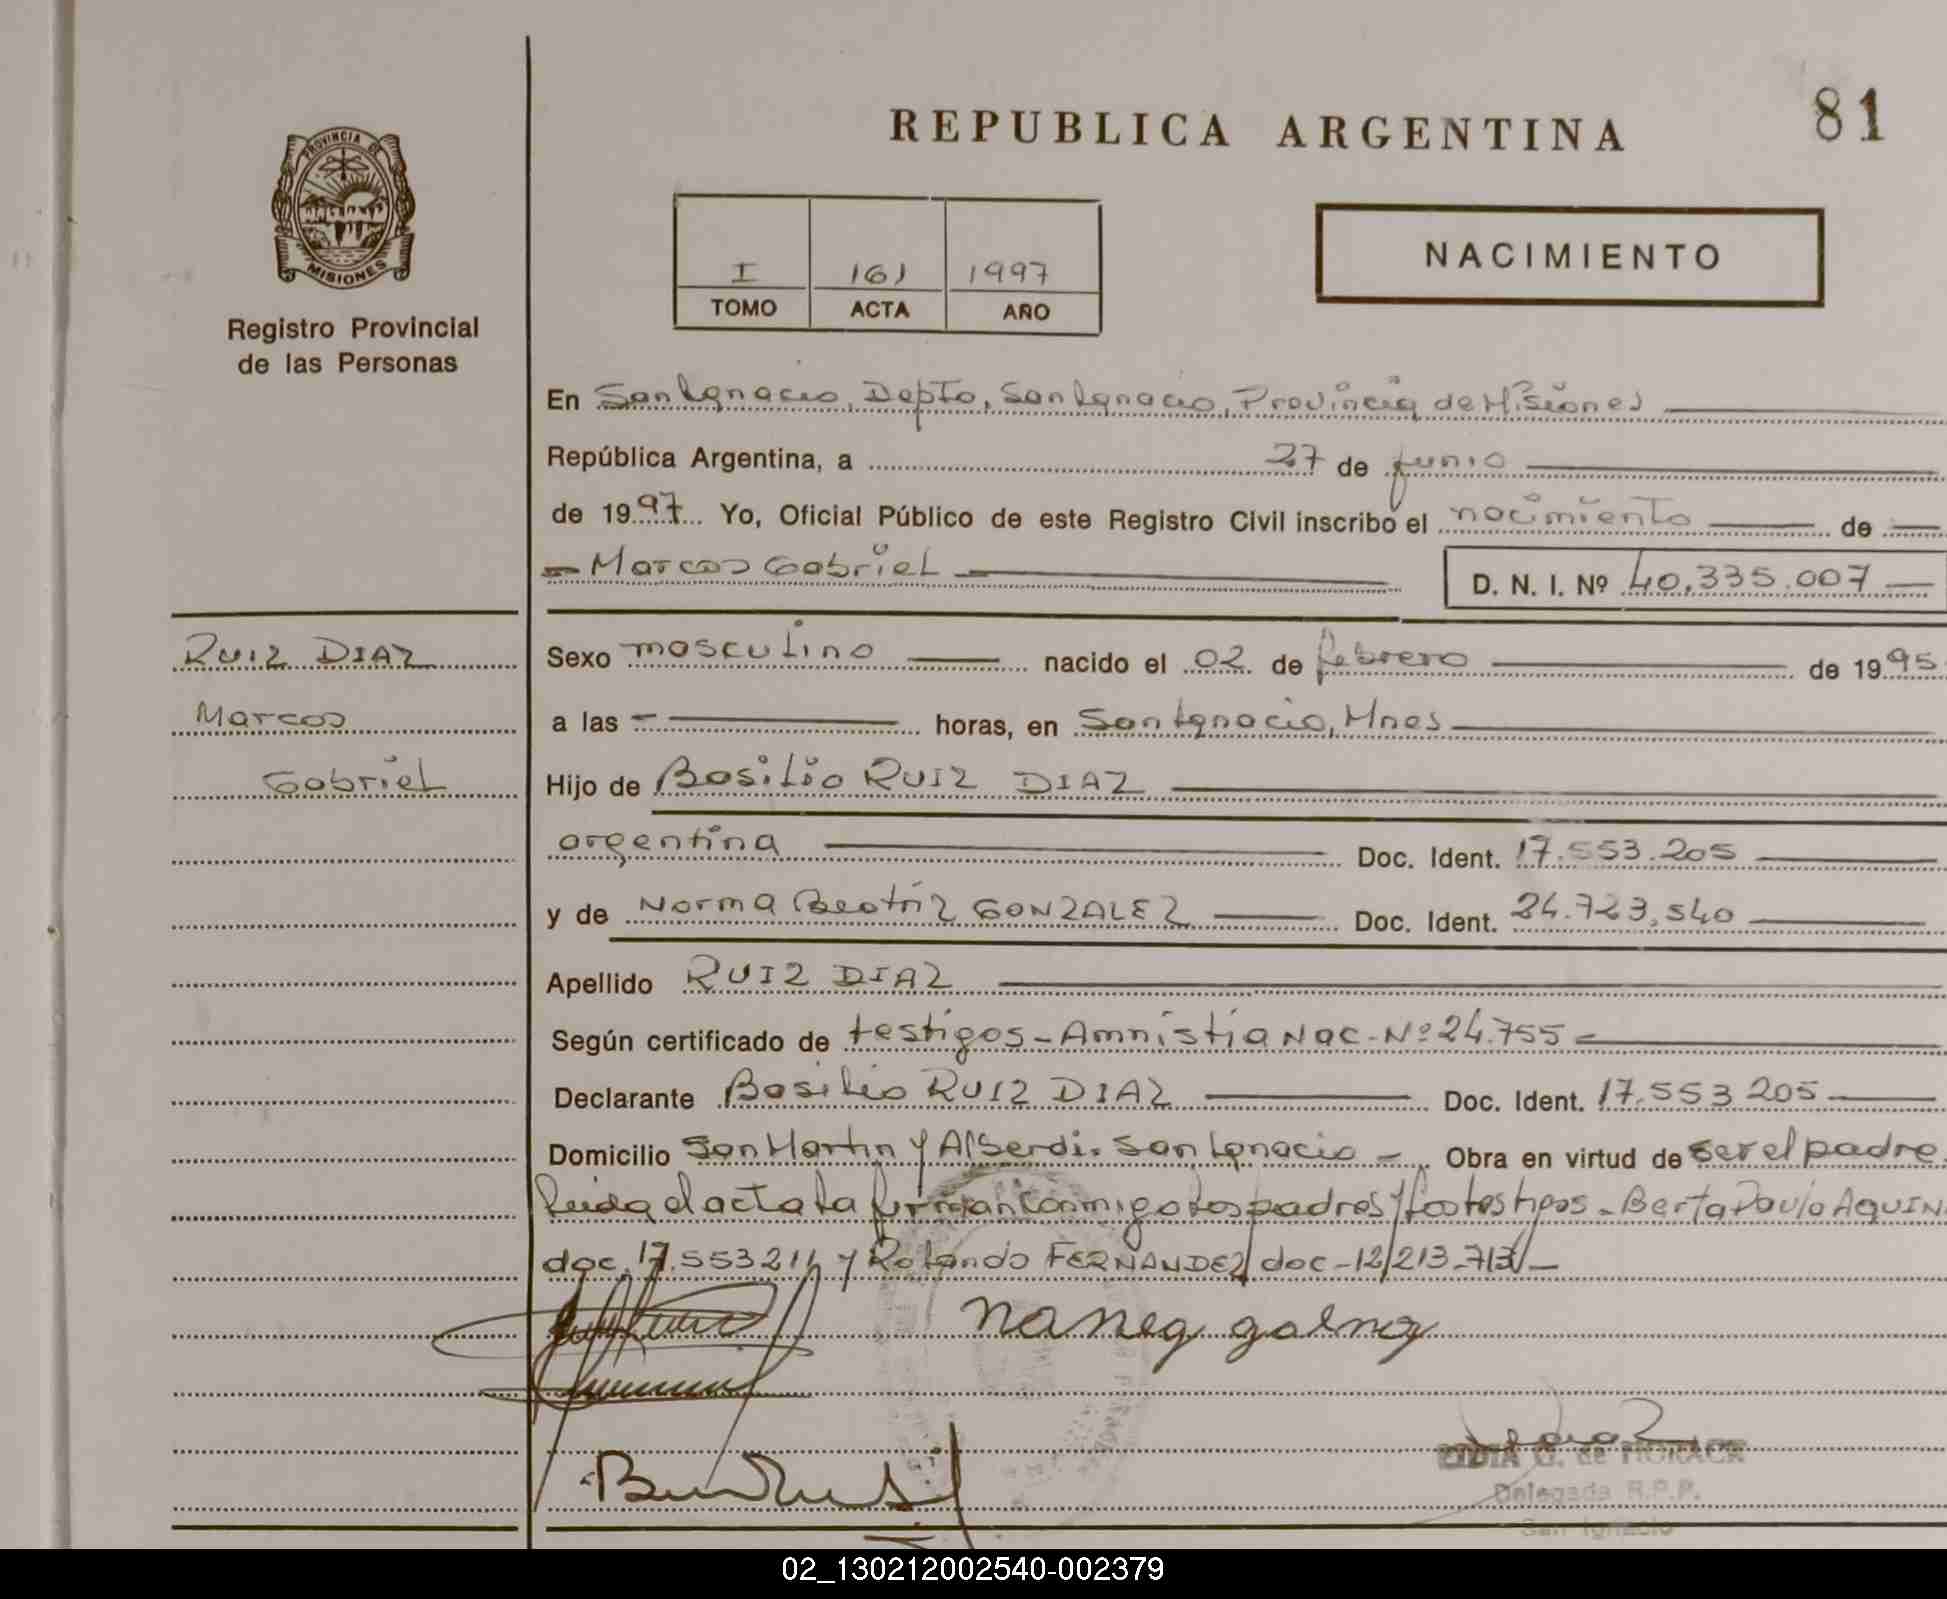 REPUBLICA ARGENTINA
81
PROVINCIA DE
MISIONES
Registro Provincial
de las Personas
I 161 1997
TOMO ACTA AÑO
NACIMIENTO
En San Ignacio, Depto, San Ignacio, Provincia de Misiones
República Argentina, a 27 de junio
de 1997 Yo, Oficial Público de este Registro Civil inscribo el nacimiento de
Marcos Gabriel D. N. I. Nº 40.335.007
RUIZ DIAZ
Marcos
Gabriel
Sexo masculino nacido el 02 de febrero de 1995
a las - horas, en San Ignacio, Mnes
Hijo de Basilio RUIZ DIAZ
argentina Doc. Ident. 17.553.205
y de Norma Beatriz GONZALEZ Doc. Ident. 24.723.540
Apellido RUIZ DIAZ
Según certificado de testigos - Amnistia Nac - Nº 24.755 -
Declarante Basilio RUIZ DIAZ Doc. Ident. 17.553 205
Domicilio San Martin y Alberdi. San Ignacio - Obra en virtud de ser el padre
leida el acta la firman conmigo los padres y los testigos - Berta Paula AQUIN
doc. 17.553211 y Rolando FERNANDEZ doc - 12.213.713 -
G. de
Delegada R.P.P.
San Ignacio
02_130212002540-002379